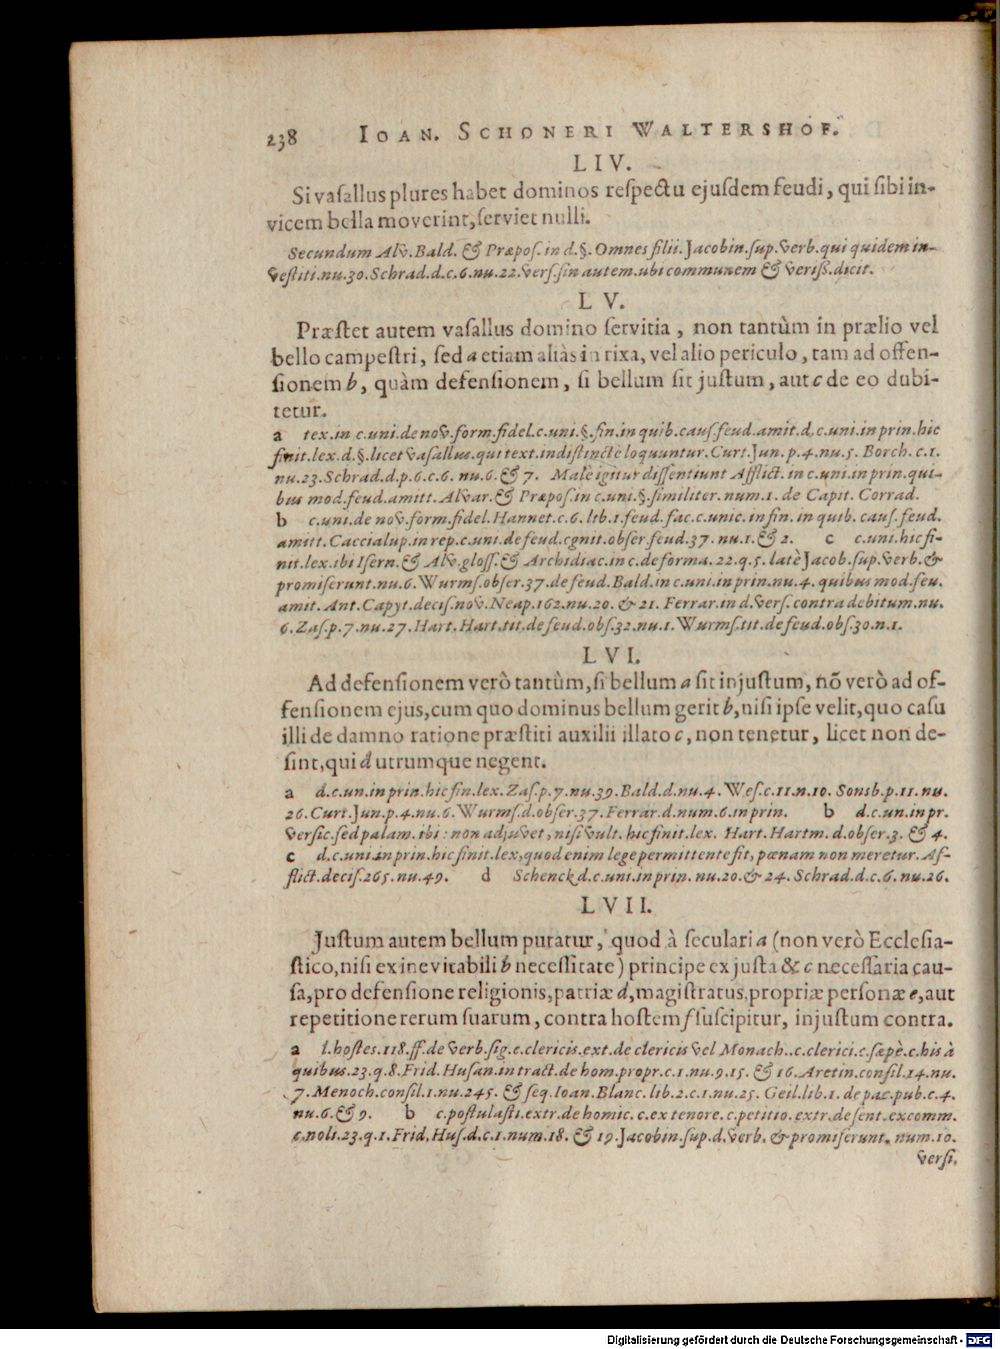 238 IOAN. SCHONERI WALTERSHOF.
LIV.
Si vaſallus plures habet dominos reſpectu ejuſdem feudi, qui ſibi in-
vicem bella moverint, ſerviet nulli.
Secundum Alv. Bald. & Præpoſ. in d. §. Omnes filii. Jacobin. ſup. verb. qui quidem in-
veſtiti. nu. 30. Schrad. d. c. 6. nu. 22. verſ. ſin autem. ubi communem & veriſs. dicit.
LV.
Præſtet autem vaſallus domino ſervitia, non tantùm in prælio vel
bello campeſtri, ſed a etiam aliàs in rixa, vel alio periculo, tam ad offen-
ſionem b, quàm defenſionem, ſi bellum ſit juſtum, aut c de eo dubi-
tetur.
a tex. in c. uni. de nov. form. fidel. c. uni. §. fin. in quib. cauſ. feud. amit. d. c. uni. in prin. hic
finit. lex. d. §. licet vaſallus. qui text. indiſtinctè loquuntur. Curt. Jun. p. 4. nu. 5. Borch. c. 1.
nu. 23. Schrad. d. p. 6. c. 6. nu. 6. & 7. Male igitur diſſentiunt Afflict. in c. uni. in prin. qui-
bus mod. feud. amitt. Alvar. & Præpoſ. in c. uni. §. ſimiliter. num. 1. de Capit. Corrad.
b c. uni. de nov. form. fidel. Hannet. c. 6. lib. 1. feud. fac. c. unic. in fin. in quib. cauſ. feud.
amitt. Caccialup. in rep. c. uni. de feud. cgnit. obſer. feud. 37. nu. 1. & 2. c c. uni. hic fi-
nit. lex. ibi Iſern. & Alv. gloſſ. & Archidiac. in c. de forma. 22. q. 5. latè Jacob. ſup. verb. &
promiſerunt. nu. 6. Wurmſ. obſer. 37. de feud. Bald. in c. uni. in prin. nu. 4. quibus mod. feu.
amit. Ant. Capyt. deciſ. nov. Neap. 162. nu. 20. & 21. Ferrar. in d. verſ. contra debitum. nu.
6. Zaſ. p. 7. nu. 27. Hart. Hart. tit. de feud. obſ. 32. nu. 1. Wurmſ. tit. de feud. obſ. 30. n. 1.
LVI.
Ad defenſionem verò tantùm, ſi bellum a ſit injuſtum, nõ verò ad of-
fenſionem ejus, cum quo dominus bellum gerit b, niſi ipſe velit, quo caſu
illi de damno ratione præſtiti auxilii illato c, non tenetur, licet non de-
ſint, qui d utrumque negent.
a d. c. un. in prin. hic fin. lex. Zaſ. p. 7. nu. 39. Bald. d. nu. 4. Weſ. c. 11. n. 10. Sonsb. p. 11. nu.
26. Curt. Jun. p. 4. nu. 6. Wurmſ. d. obſer. 37. Ferrar. d. num. 6. in prin. b d. c. un. in pr.
verſic. ſed palam. ibi: non adjuvet, niſi vult. hic finit. lex. Hart. Hartm. d. obſer. 3. & 4.
c d. c. uni. in prin. hic finit. lex, quod enim lege permittente fit, pœnam non meretur. Af-
flict. deciſ. 265. nu. 49. d Schenck. d. c. uni. in prin. nu. 20. & 24. Schrad. d. c. 6. nu. 26.
LVII.
Juſtum autem bellum putatur, quod à ſeculari a (non verò Eccleſia-
ſtico, niſi ex inevitabili b neceſſitate) principe ex juſta & c neceſſaria cau-
ſa, pro defenſione religionis, patriæ d, magiſtratus, propriæ perſonæ e, aut
repetitione rerum ſuarum, contra hoſtem f ſuſcipitur, injuſtum contra.
a l. hoſtes. 118. ff. de verb. ſig. c. clericis. ext. de clericis vel Monach.. c. clerici. c. ſæpè. c. his à
quibus. 23. q. 8. Frid. Huſan. in tract. de hom. propr. c. 1. nu. 9. 15. & 16. Aretin. conſil. 14. nu.
7. Menoch. conſil. 1. nu. 245. & ſeq. Ioan. Blanc. lib. 2. c. 1. nu. 25. Geil. lib. 1. de pac. pub. c. 4.
nu. 6. & 9. b c. poſtulaſti. extr. de homic. c. ex tenore. c. petitio. extr. de ſent. excomm.
c. noli. 23. q. 1. Frid. Huſ. d. c. 1. num. 18. & 19. Jacobin. ſup. d. verb. & promiſerunt. num. 10.
verſi.
Digitalisierung gefördert durch die Deutsche Forschungsgemeinschaft - DFG